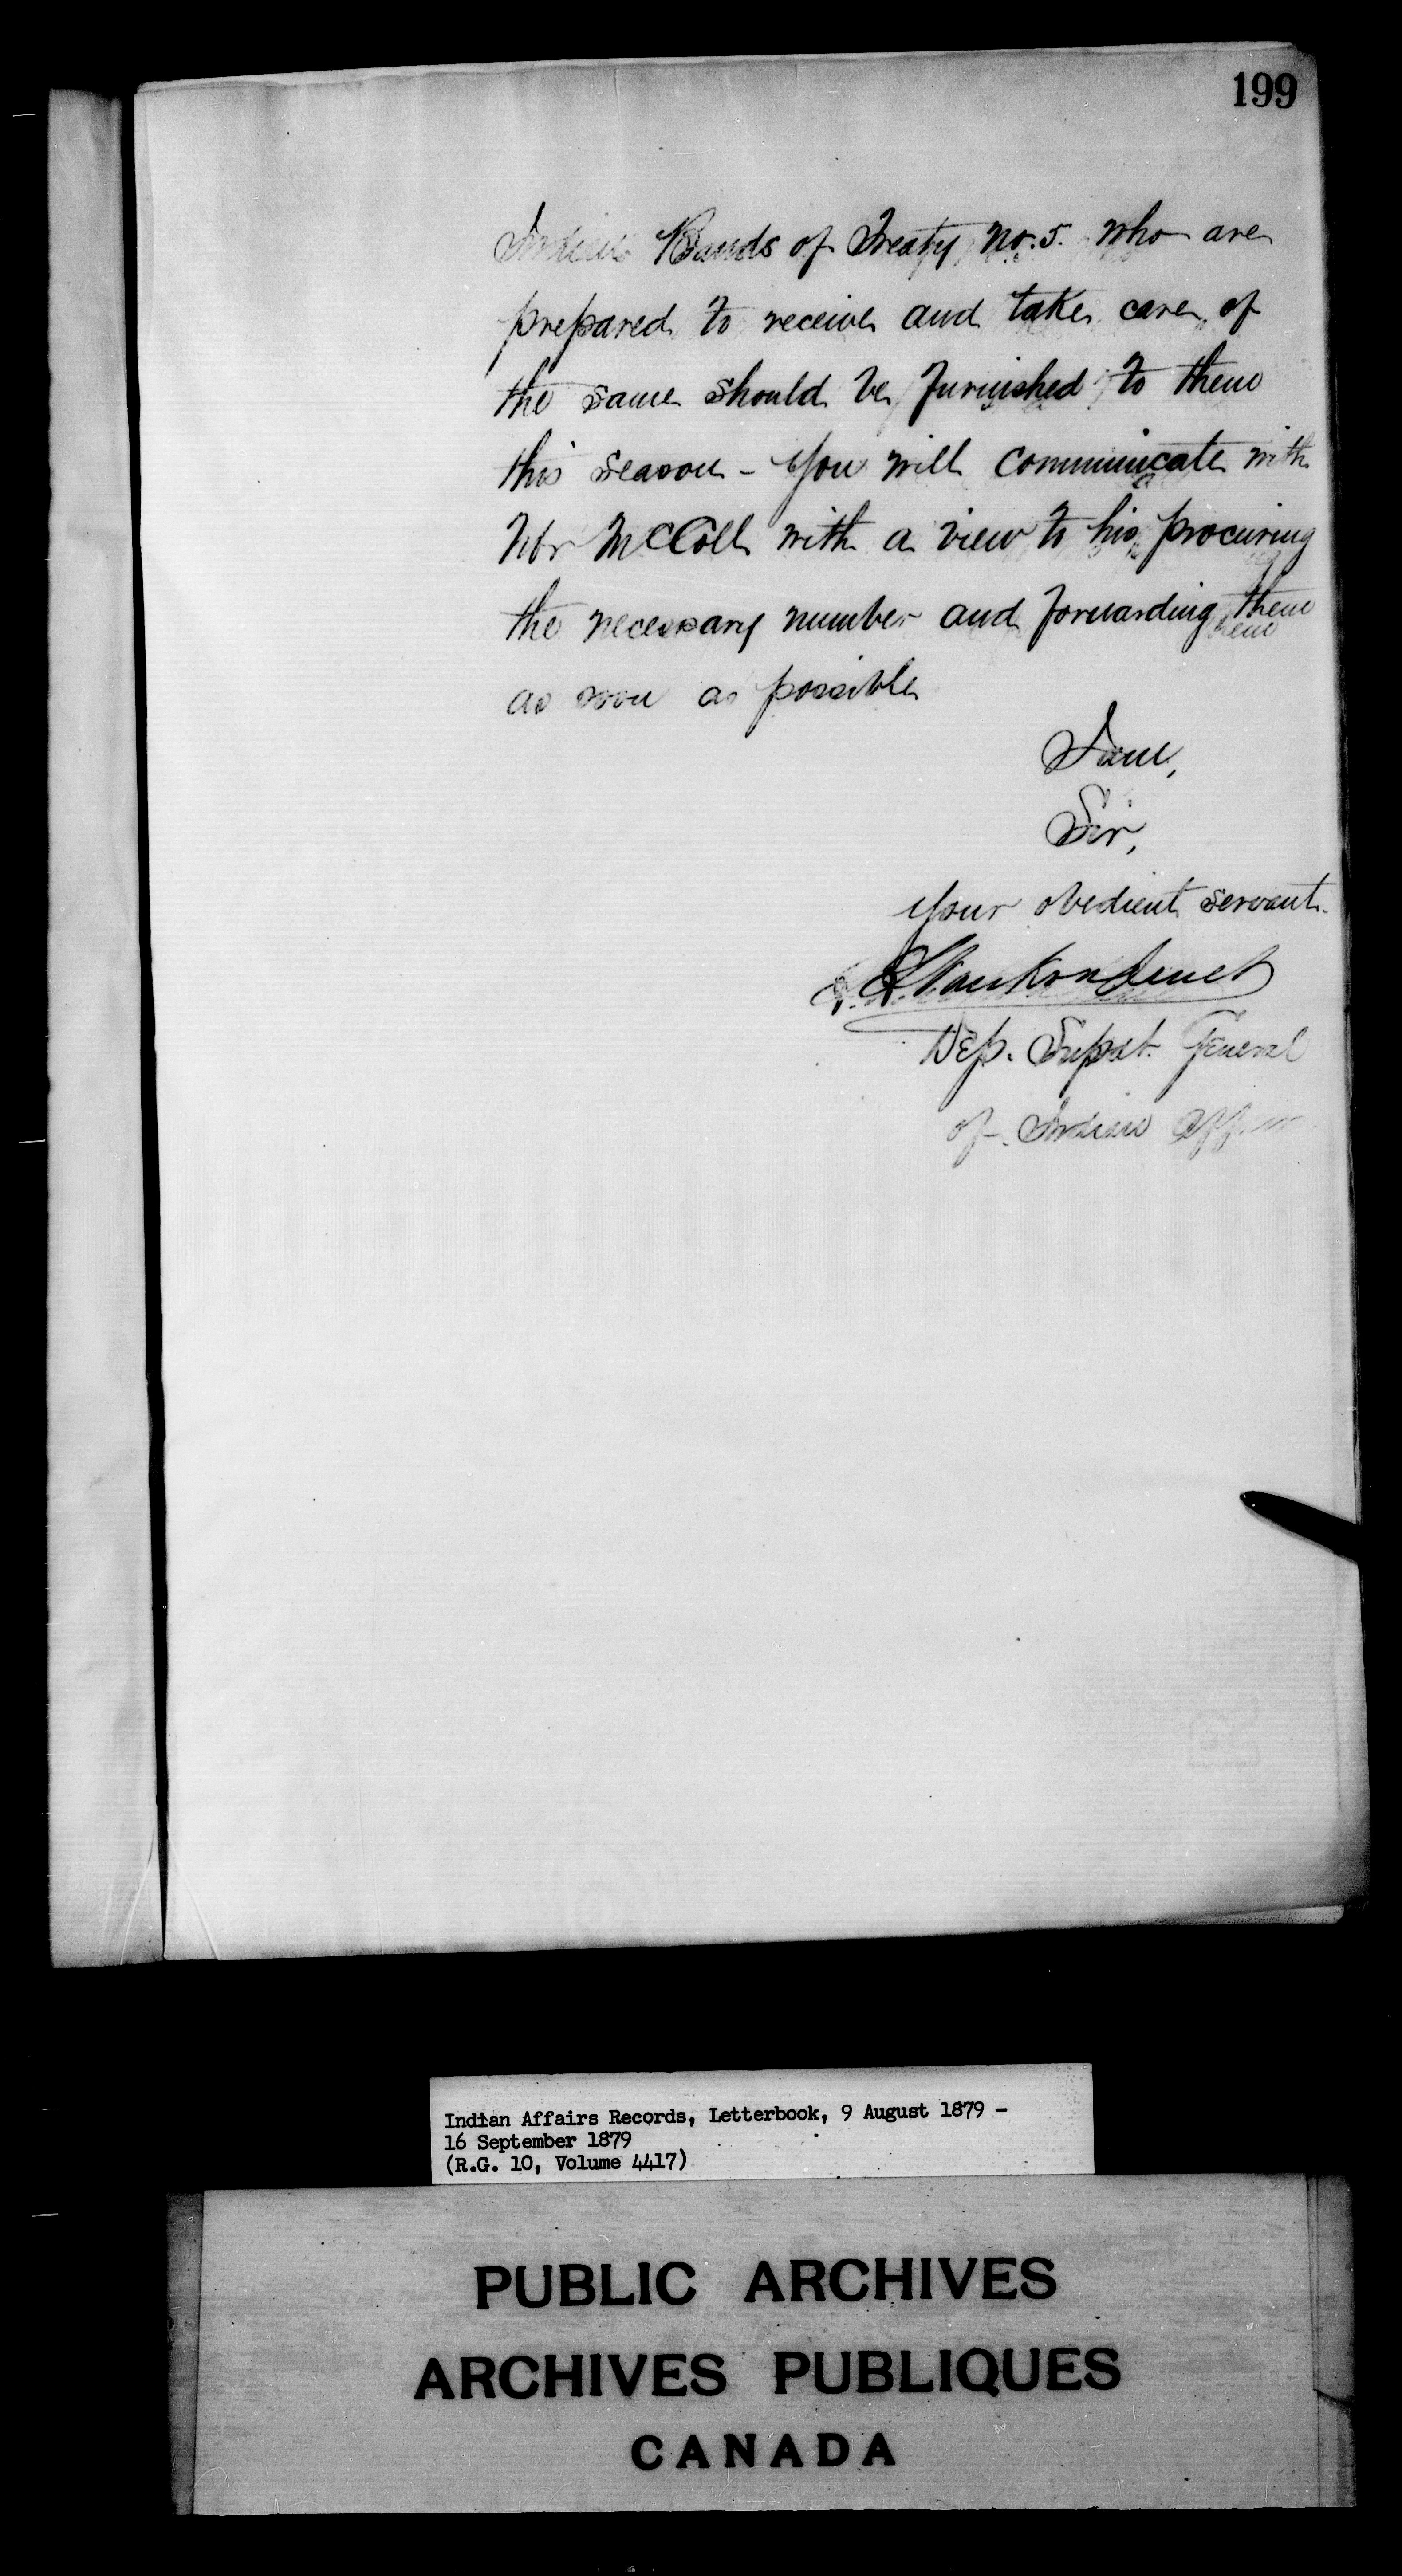 199
Indian Bands of Treaty No. 5. who are
prepared to receive and take care of
the same should be furnished to them
this season - You will communicate with
Mr McColl with a view to his procuring
the necessary number and forwarding them
as soon as possible
I am,
Sir,
Your obedient servant.
L. Vankoughnet
Dep. Supt. General
of Indian Affairs
Indian Affairs Records, Letterbook, 9 August 1879 -
16 September 1879
(R.G. 10, Volume 4417)
PUBLIC ARCHIVES
ARCHIVES PUBLIQUES
CANADA